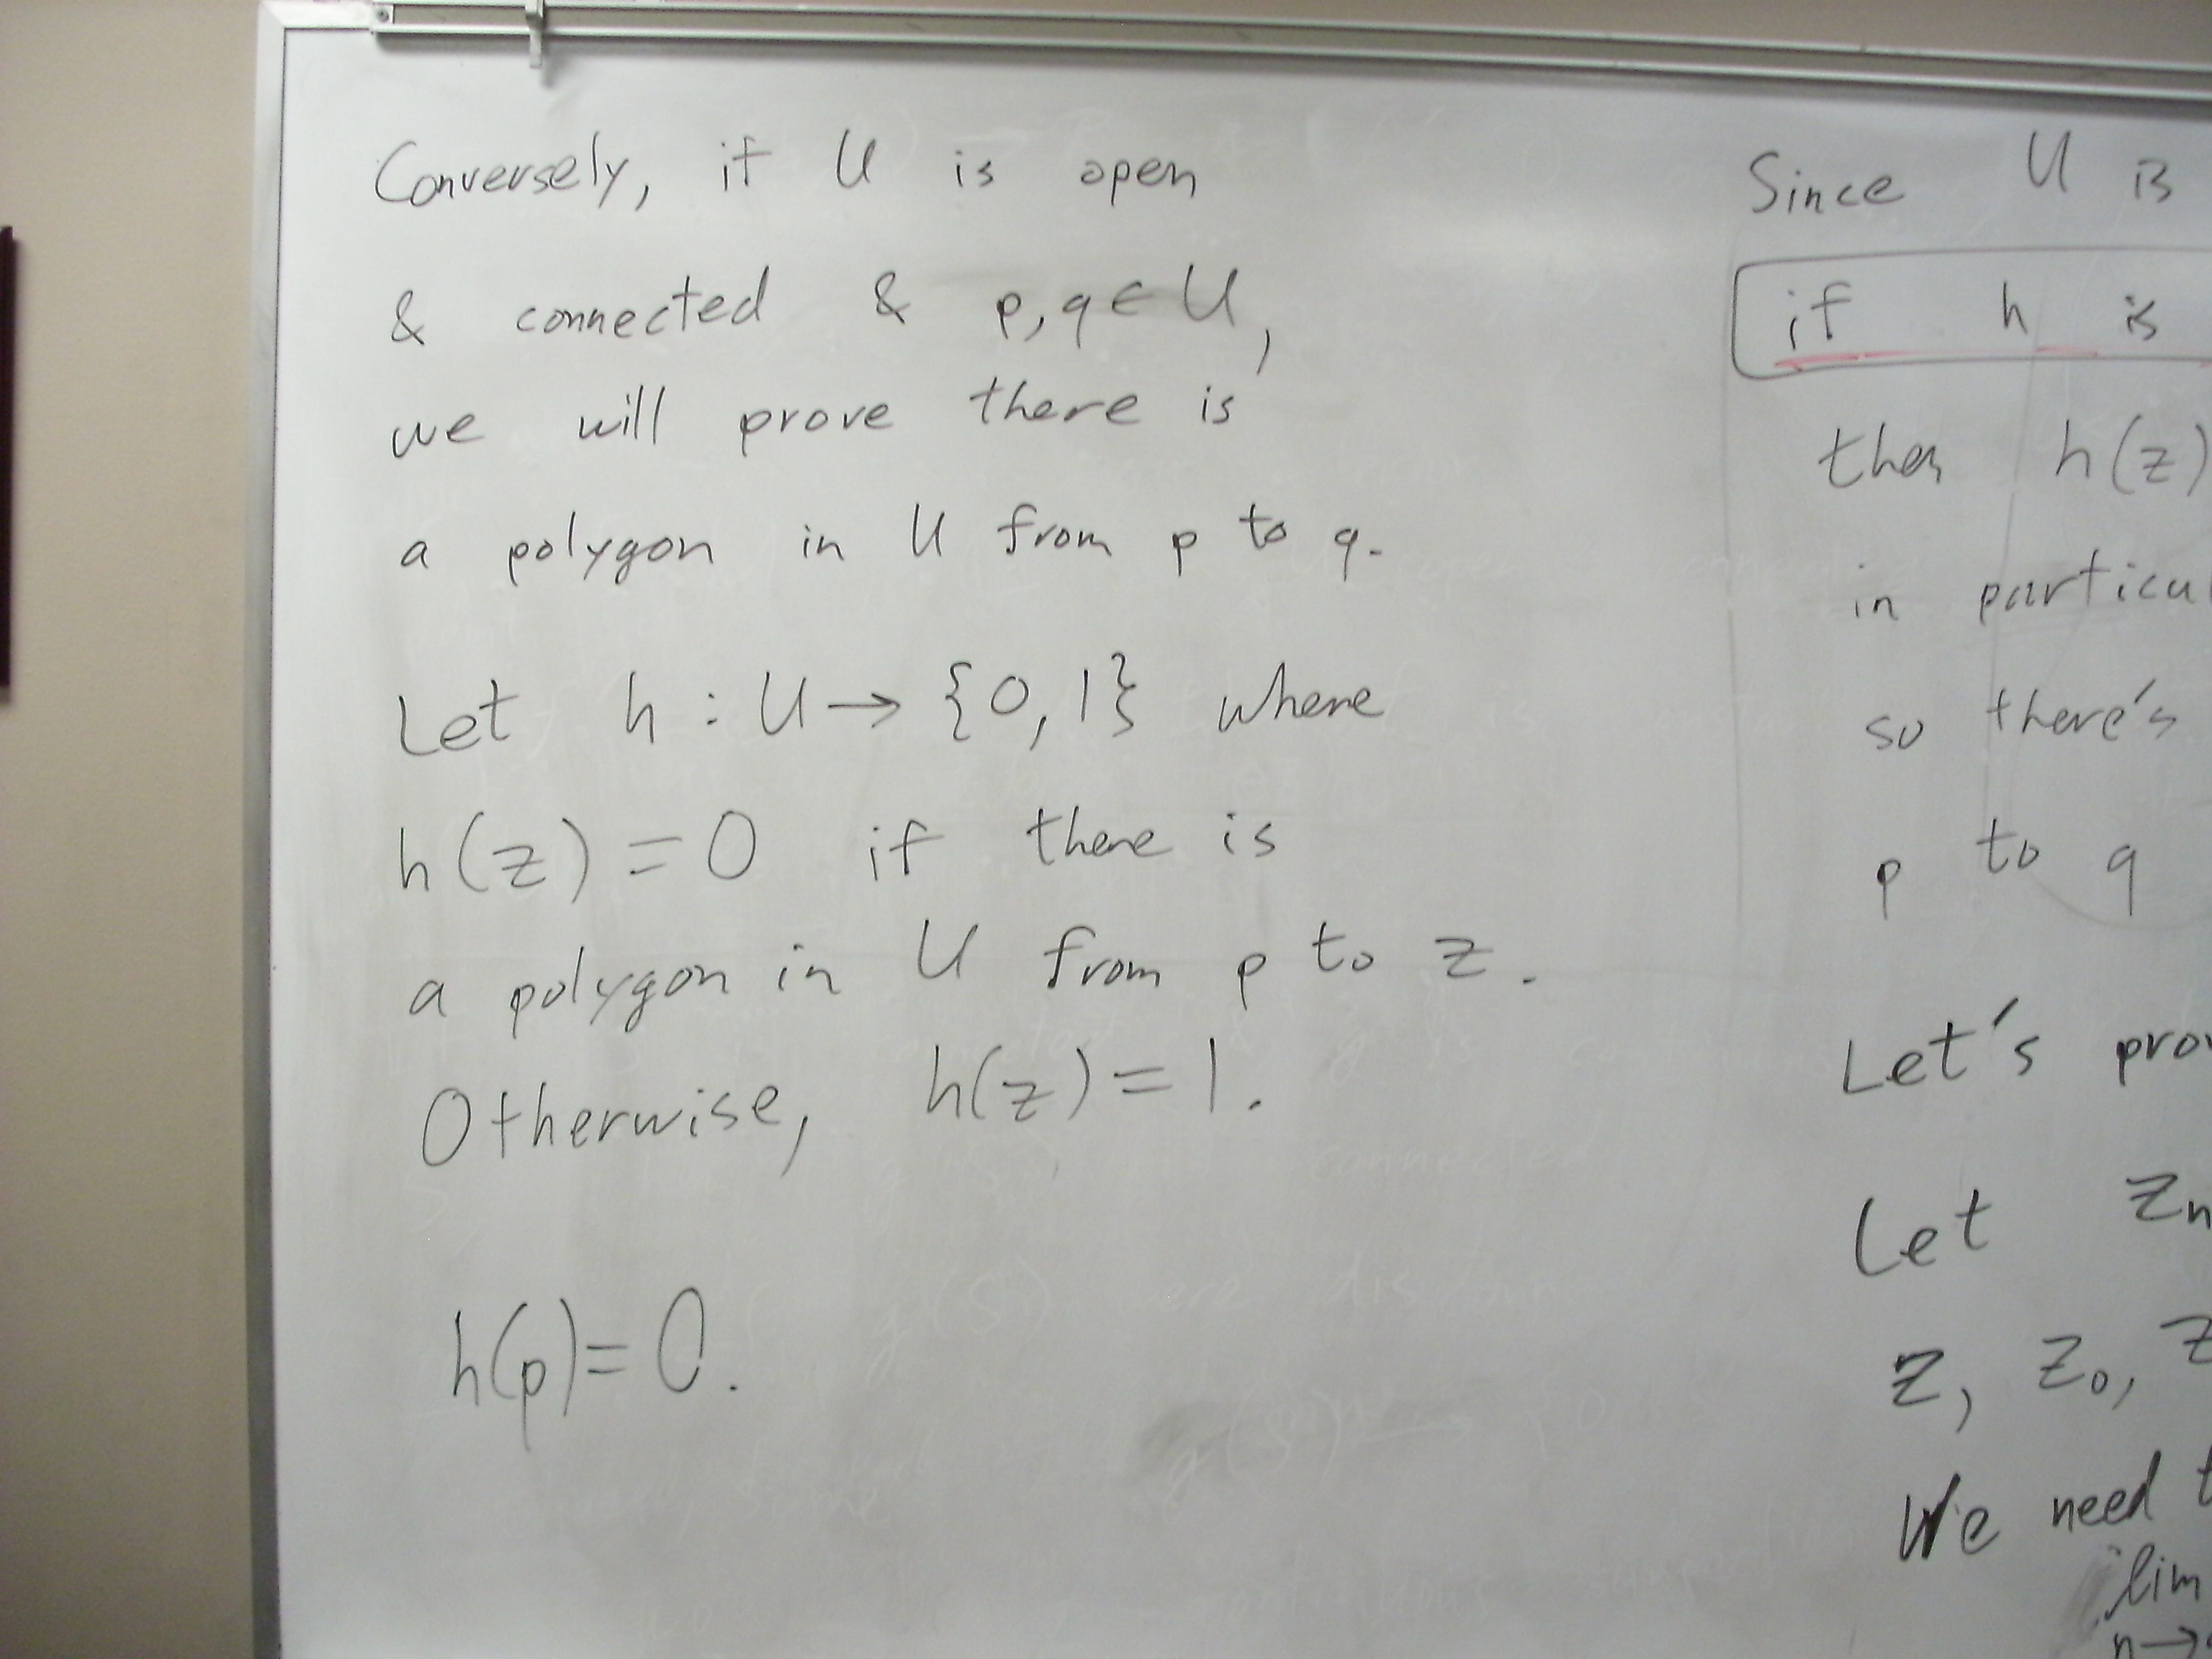 Conversely, if U is open
& connected & p,q ∈ U,
we will prove there is
a polygon in U from p to q.
Let h : U → {0,1} where
h(z) = 0 if there is
a polygon in U from p to z.
Otherwise, h(z) = 1.
h(p) = 0.
Since U is
if h is
then h(z)
in particul
so there's
p to q
Let's prov
Let zn
z, z0, z
We need t
lim
n→